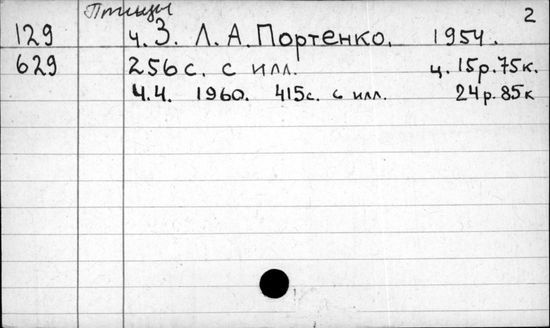 Птицы
2
129 ч. 3. Л. А. Портенко. 1954.
629 256 с. с илл. ц. 15р.75к.
ч.4. 1960. 415с. с илл. 24р.85к